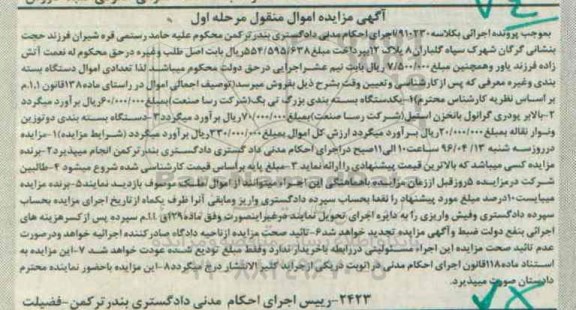 آگهی مزایده اموال منقول مرحله اول
بموجب پرونده اجرائی بکلاسه ۹۱۰۲۳۰/اجرای احکام مدنی دادگستری بندرترکمن محکوم علیه حامد رستمی قره شیران فرزند حجت
بنشانی گرگان شهرک سپاه گلباران ۸ پلاک ۱۲ بپرداخت مبلغ ۵۵۴/۵۹۵/۶۳۸ ریال بابت اصل طلب وغیره درحق محکوم له نعمت آتش
زاده فرزند یاور وهمچنین مبلغ ۷/۵۰۰/۰۰۰ ریال بابت نیم عشراجرایی درحق دولت محکوم میباشد. لذا تعدادی اموال دستگاه بسته
بندی وغیره معرفی که پس ازکارشناسی وتعیین وقت بشرح ذیل بفروش میرسد (توصیف اجمالی اموال در راستای ماده ۱۳۸ قانون ا.ا.م
بر اساس نظریه کارشناس محترم) ۱-یکدستگاه بسته بندی بزرگ تی بگ (شرکت رسا صنعت) بمبلغ ریال برآورد میگردد
۲-بالابر پودری گرانول بانخزن استیل (شرکت رسا صنعت) بمبلغ ریال برآورد میگردد ۳-دستگاه بسته بندی دوتوزین
ونوار نقاله بمبلغ ریال برآورد میگردد ارزش کل اموال بمبلغ ریال برآورد میگردد (شرایط مزایده) ۱-مزایده
درروزسه شنبه ۹۶/۰۴/۱۳ ساعت ۱۰ الی ۱۱ صبح دراجرای احکام مدنی دادگستری دادگستری بندرترکمن انجام میپذیرد ۲-برنده
مزایده کسی میباشد که بالاترین قیمت پیشنهادی را ارائه نماید ۳-مبلغ پایه براساس قیمت کارشناسی شده شروع میشود ۴-طالبین
شرکت درمزایده ۵ روزقبل اززمان مزایده باهماهنگی این اجرا میتوانند از اموال موصوف بازدید نمایند ۵-برنده مزایده
میبایست ۱۰ درصد مبلغ مورد پیشنهاد را نقدا بحساب سپرده دادگستری واریز ومابقی آنرا ظرف یکماه ازتاریخ اجرای مزایده بحساب
سپرده دادگستری وفیش واریزی را به دایره اجرای تحویل نمایند درغیراینصورت وفق ماده ۱۲۹ ق ا.ا.م سپرده پس ازکسرهزینه های
اجرائی بنفع دولت ضبط و آگهی مزایده تجدید خواهد شد ۶-تائید صحت مزایده ازناحیه دادگاه صادرکننده اجرائیه خواهد ودرصورت
عدم تائید صحت مزایده این اجراء مسئولیتی دررابطه باخریدار ندارد وفقط مبلغ تودیع شده عودت خواهد شد ۷-این مزایده به
استناد ماده ۱۱۸ قانون اجرای احکام مدنی در نوبت دریکی ازجراید کثیر الانتشار درج میگردد ۸-این مزایده باحضور نماینده محترم
دادستان صورت میپذیرد.
۲۴۲۳-رییس اجرای احکام مدنی دادگستری بندر ترکمن-فضیلت